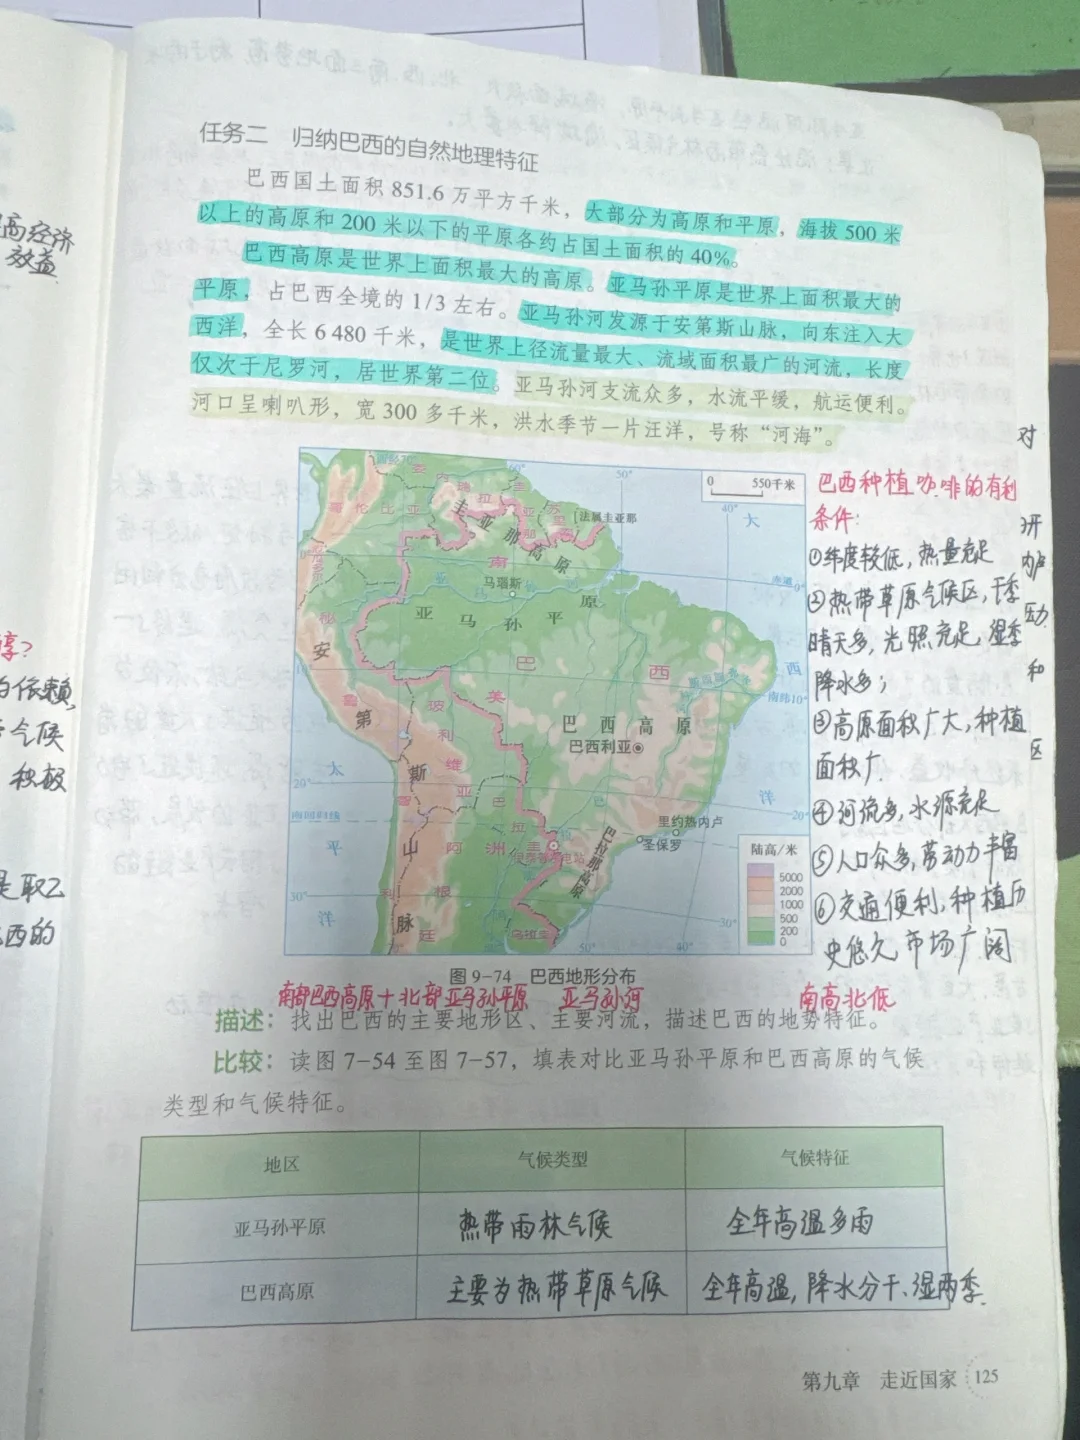 任务二 归纳巴西的自然地理特征
巴西国土面积 851.6 万平方千米，大部分为高原和平原，海拔 500 米
以上的高原和 200 米以下的平原各约占国土面积的 40%。
巴西高原是世界上面积最大的高原。亚马孙平原是世界上面积最大的
平原，占巴西全境的 1/3 左右。亚马孙河发源于安第斯山脉，向东注入大
西洋，全长 6 480 千米，是世界上径流量最大、流域面积最广的河流，长度
仅次于尼罗河，居世界第二位。亚马孙河支流众多，水流平缓，航运便利。
河口呈喇叭形，宽 300 多千米，洪水季节一片汪洋，号称“河海”。
高经济
效益
的依赖，
气候
积极
是取之
西的
0 550千米
60°
50°
40°
大
西
洋
太
平
洋
哥伦比亚
圭亚那高原
法属圭亚那
赤道
0°
马瑙斯
亚马孙平原
秘
鲁
巴
西
南纬10°
10°
安
第
斯
山
脉
玻
利
维
亚
巴西高原
巴西利亚
20°
20°
南回归线
巴
拉
圭
里约热内卢
圣保罗
巴拉那高原
南
美
洲
阿
根
廷
智
利
乌拉圭
30°
30°
50°
40°
陆高/米
5000
2000
1000
500
200
0
图 9-74 巴西地形分布
巴西种植咖啡的有利
条件：
①纬度较低，热量充足
②热带草原气候区，干季
晴天多，光照充足，湿季
降水多；
③高原面积广大，种植
面积广.
④河流多，水源充足
⑤人口众多，劳动力丰富
⑥交通便利，种植历
史悠久 市场广阔
对
和
区
南部巴西高原＋北部亚马孙平原 亚马孙河 南高北低
描述：找出巴西的主要地形区、主要河流，描述巴西的地势特征。
比较：读图 7-54 至图 7-57，填表对比亚马孙平原和巴西高原的气候
类型和气候特征。
地区 气候类型 气候特征
亚马孙平原 热带雨林气候 全年高温多雨
巴西高原 主要为热带草原气候 全年高温，降水分干、湿两季.
第九章 走近国家 125